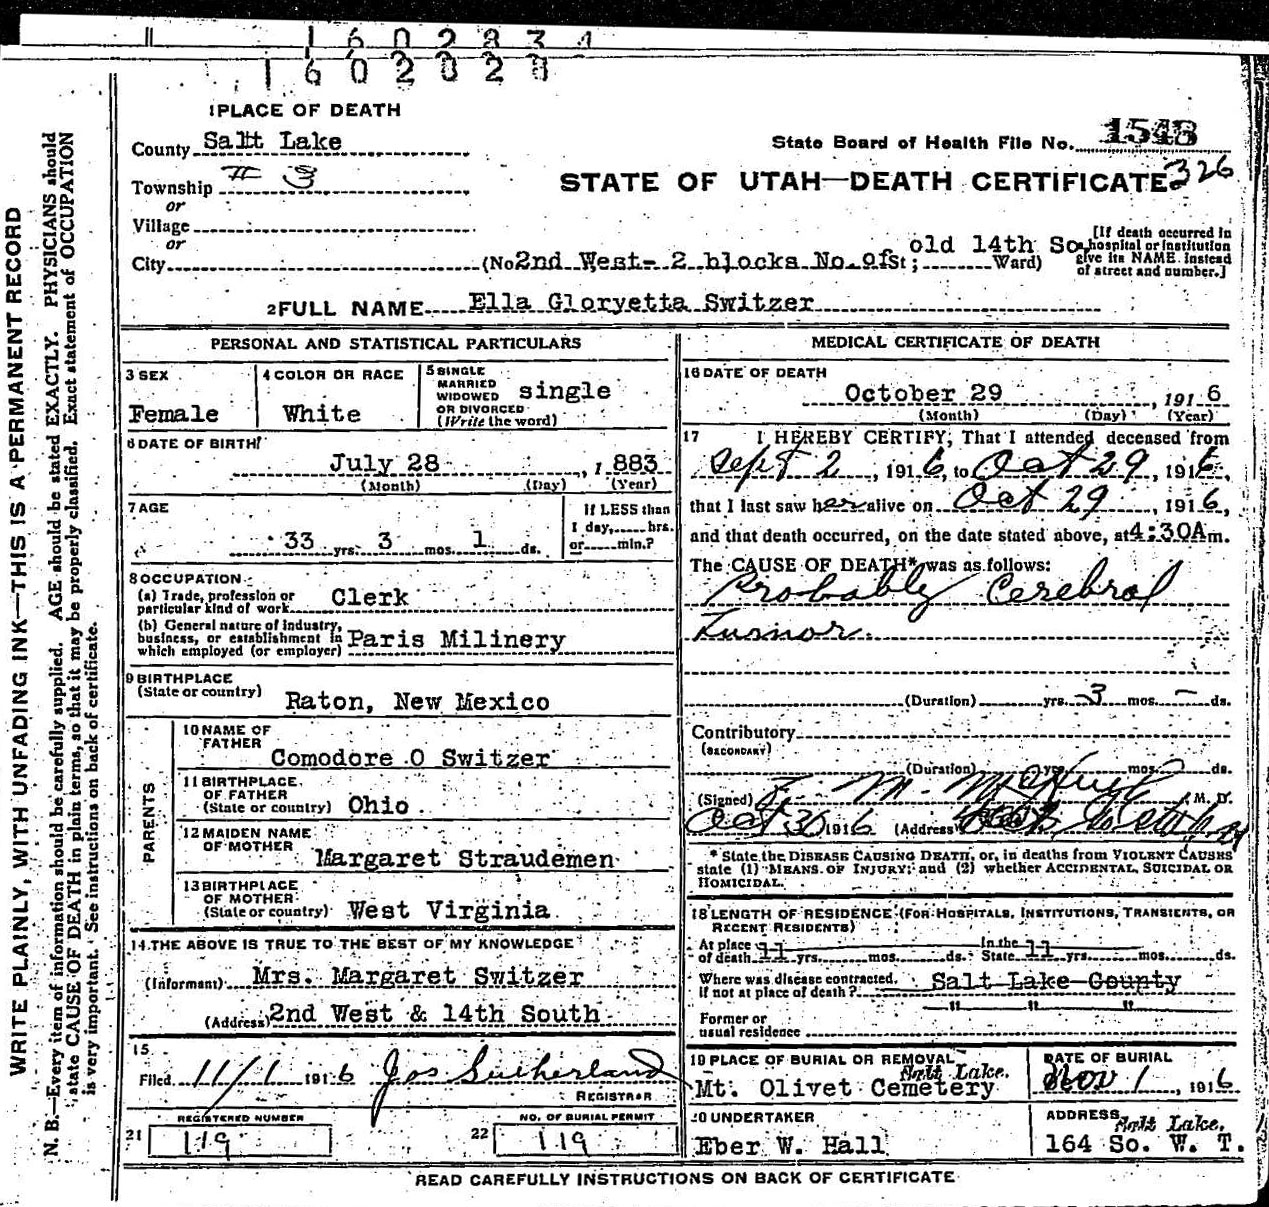 1602834
1602828
1 PLACE OF DEATH
County Saltt Lake
State Board of Health File No. 1548
Township # 3
STATE OF UTAH—DEATH CERTIFICATE 326
or
Village
or
City (No 2nd West- 2 blocks No. of St; old 14th So. Ward)
[If death occurred in hospital or institution give its NAME instead of street and number.]
2 FULL NAME Ella Gloryetta Switzer
PERSONAL AND STATISTICAL PARTICULARS
3 SEX
Female
4 COLOR OR RACE
White
5 SINGLE
MARRIED
WIDOWED
OR DIVORCED
(Write the word)
single
6 DATE OF BIRTH
July 28 , 1 883
(Month) (Day) (Year)
7 AGE
33 yrs. 3 mos. 1 ds.
If LESS than
1 day, hrs.
or min.?
8 OCCUPATION
(a) Trade, profession or
particular kind of work Clerk
(b) General nature of industry,
business, or establishment in
which employed (or employer) Paris Milinery
9 BIRTHPLACE
(State or country)
Raton, New Mexico
PARENTS
10 NAME OF
FATHER
Comodore O Switzer
11 BIRTHPLACE
OF FATHER
(State or country) Ohio
12 MAIDEN NAME
OF MOTHER
Margaret Straudemen
13 BIRTHPLACE
OF MOTHER
(State or country) West Virginia
14 THE ABOVE IS TRUE TO THE BEST OF MY KNOWLEDGE
(Informant) Mrs. Margaret Switzer
(Address) 2nd West & 14th South
15
Filed 11/1 1916 Jos Sutherland
REGISTRAR
REGISTERED NUMBER
21 119
NO. OF BURIAL PERMIT
22 119
MEDICAL CERTIFICATE OF DEATH
16 DATE OF DEATH
October 29 , 191 6
(Month) (Day) (Year)
17 I HEREBY CERTIFY, That I attended deceased from
Sept 2 , 1916, to Oct 29 , 1916,
that I last saw her alive on Oct 29 , 1916,
and that death occurred, on the date stated above, at 4:30A m.
The CAUSE OF DEATH* was as follows:
Probably Cerebral
Tumor
(Duration) yrs. 3 mos. - ds.
Contributory
(SECONDARY)
(Duration) yrs. mos. ds.
(Signed) M. , M. D.
Oct 30 1916 (Address)
* State the DISEASE CAUSING DEATH, or, in deaths from VIOLENT CAUSES
state (1) MEANS OF INJURY; and (2) whether ACCIDENTAL, SUICIDAL OR
HOMICIDAL.
18 LENGTH OF RESIDENCE (FOR HOSPITALS, INSTITUTIONS, TRANSIENTS, OR
RECENT RESIDENTS)
At place
of death 11 yrs. mos. ds.
In the
State 11 yrs. mos. ds.
Where was disease contracted,
if not at place of death? Salt Lake County
" " "
Former or
usual residence
19 PLACE OF BURIAL OR REMOVAL
Salt Lake.
Mt. Olivet Cemetery
DATE OF BURIAL
Nov 1 , 1916
20 UNDERTAKER
Eber W. Hall
ADDRESS
Salt Lake,
164 So. W. T.
READ CAREFULLY INSTRUCTIONS ON BACK OF CERTIFICATE
WRITE PLAINLY, WITH UNFADING INK—THIS IS A PERMANENT RECORD
N. B.—Every item of information should be carefully supplied. AGE should be stated EXACTLY. PHYSICIANS should
state CAUSE OF DEATH in plain terms, so that it may be properly classified. Exact statement of OCCUPATION
is very important. See instructions on back of certificate.